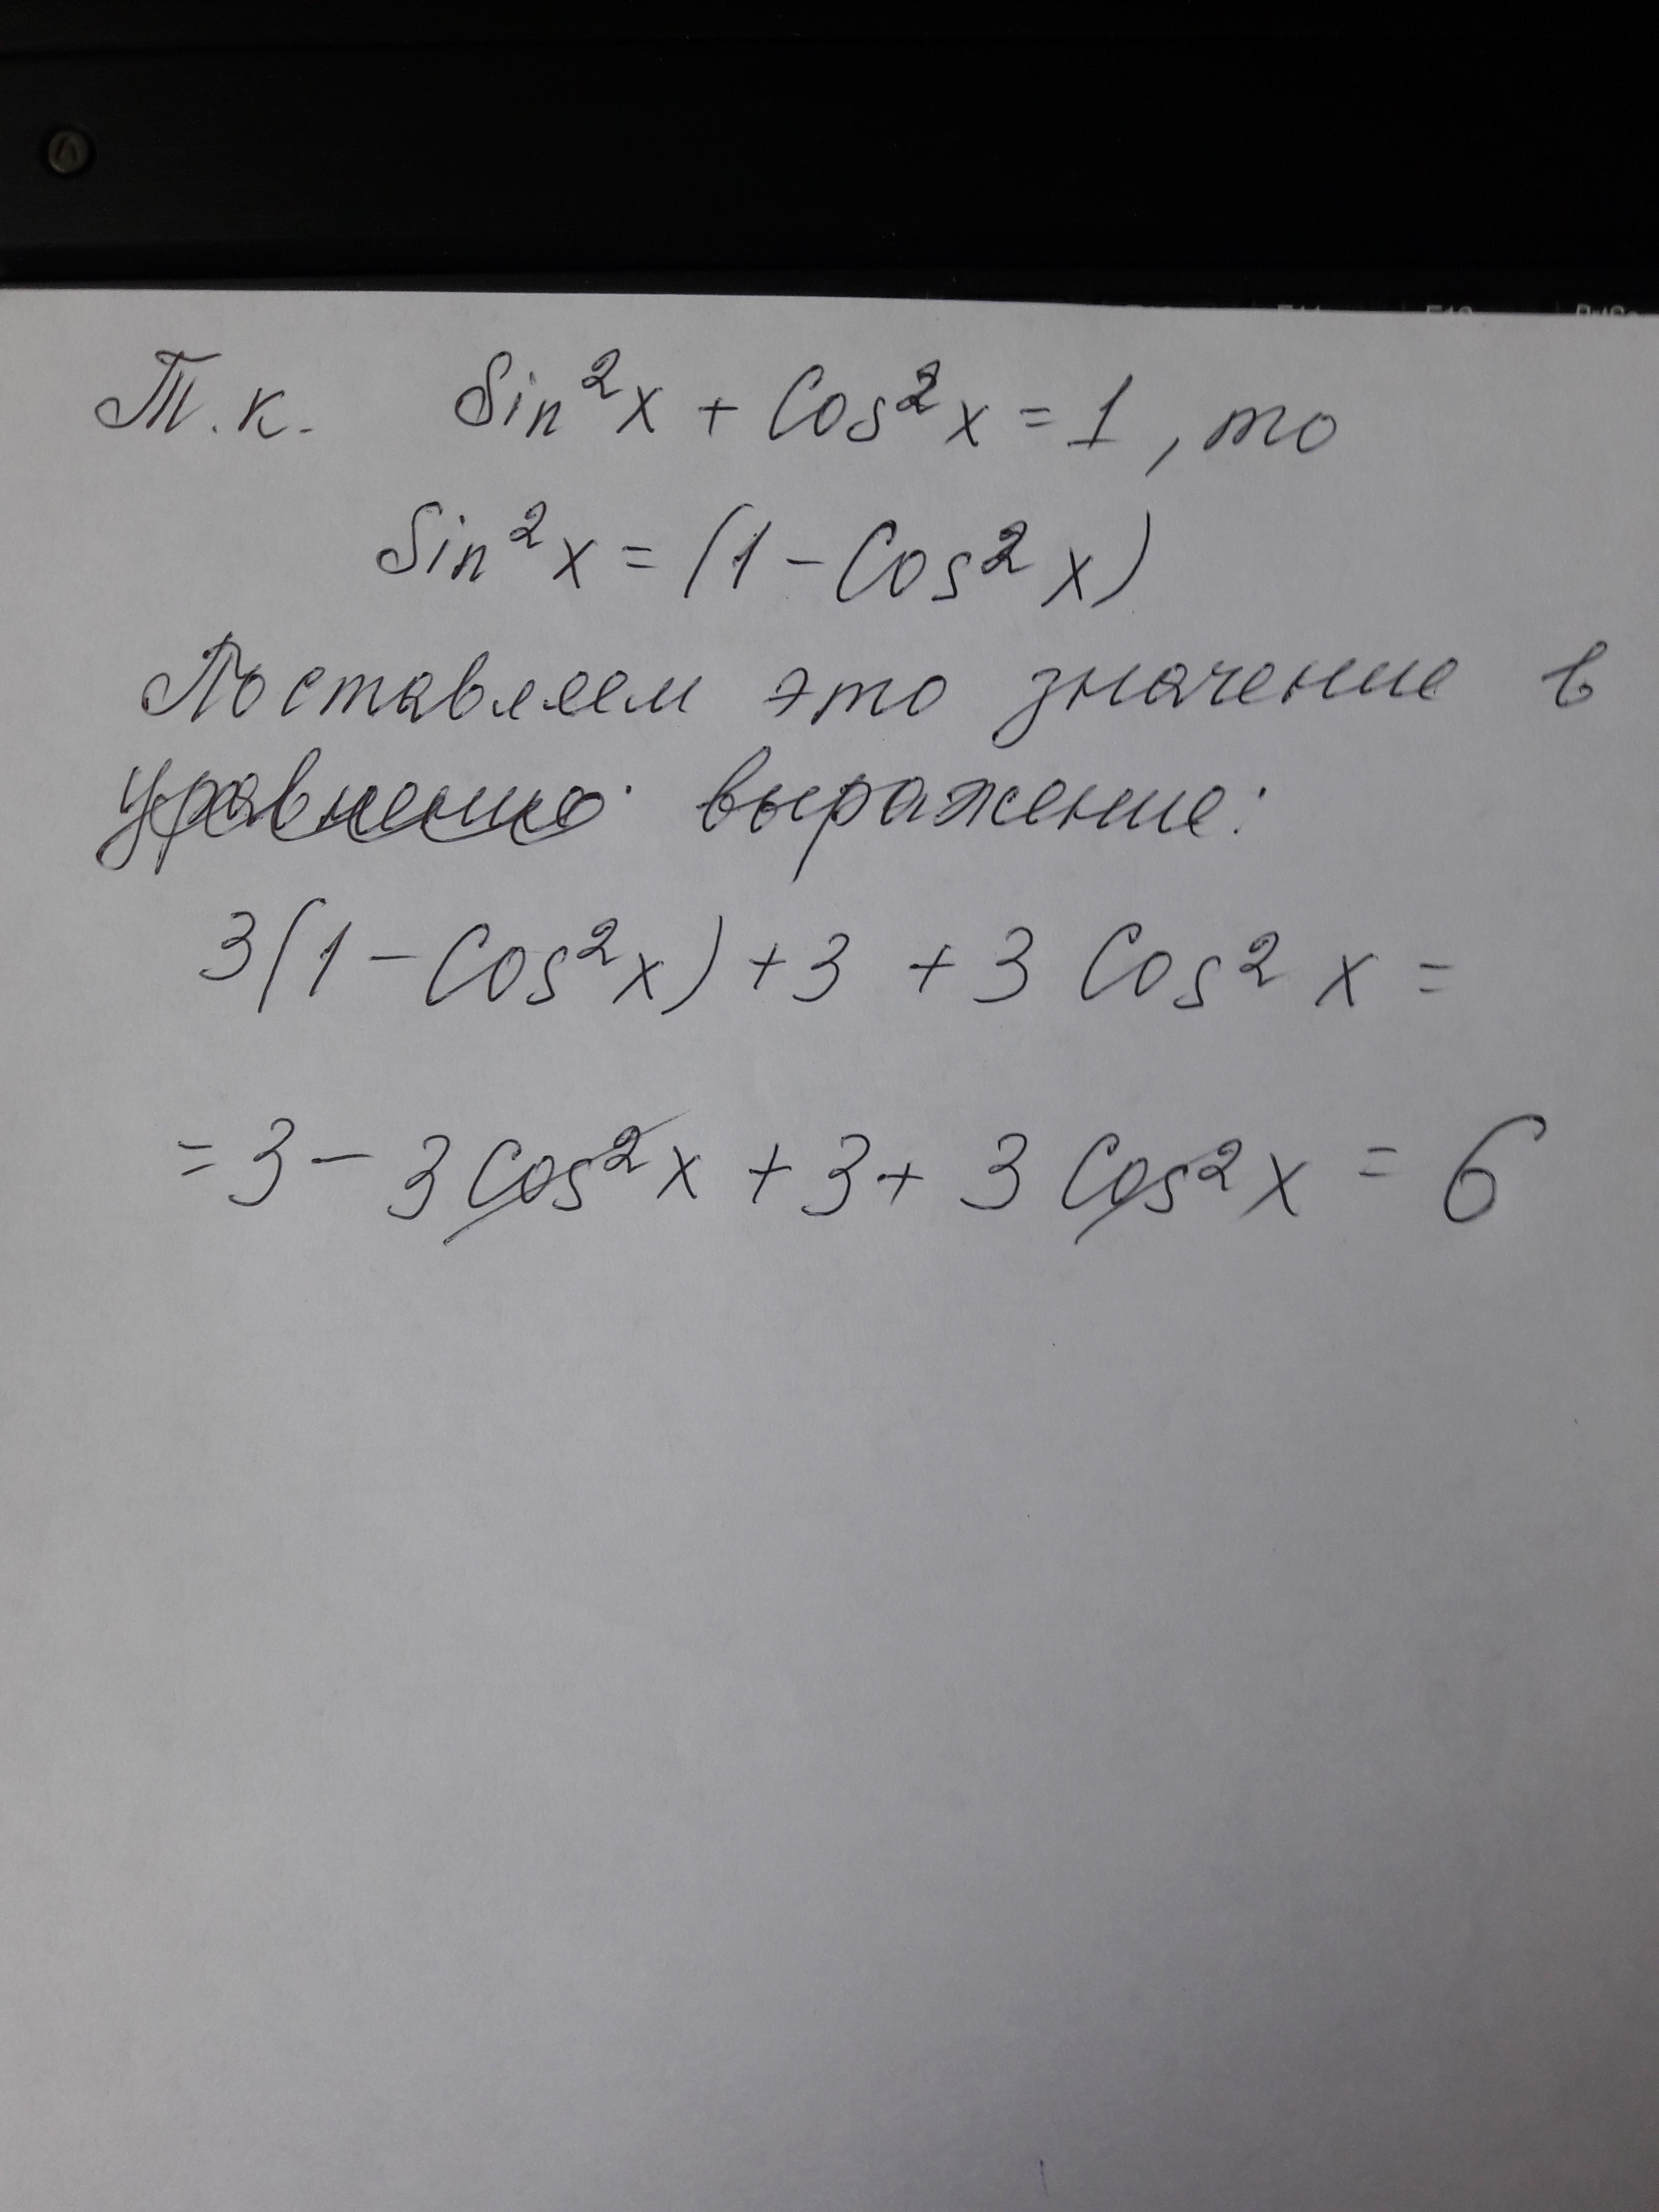 Т.к. Sin²x + Cos²x = 1, то
Sin²x = (1 - Cos²x)
Поставляем это значение в
уравнению выражение:
3(1 - Cos²x) + 3 + 3 Cos² x =
= 3 - 3 Cos²x + 3 + 3 Cos²x = 6